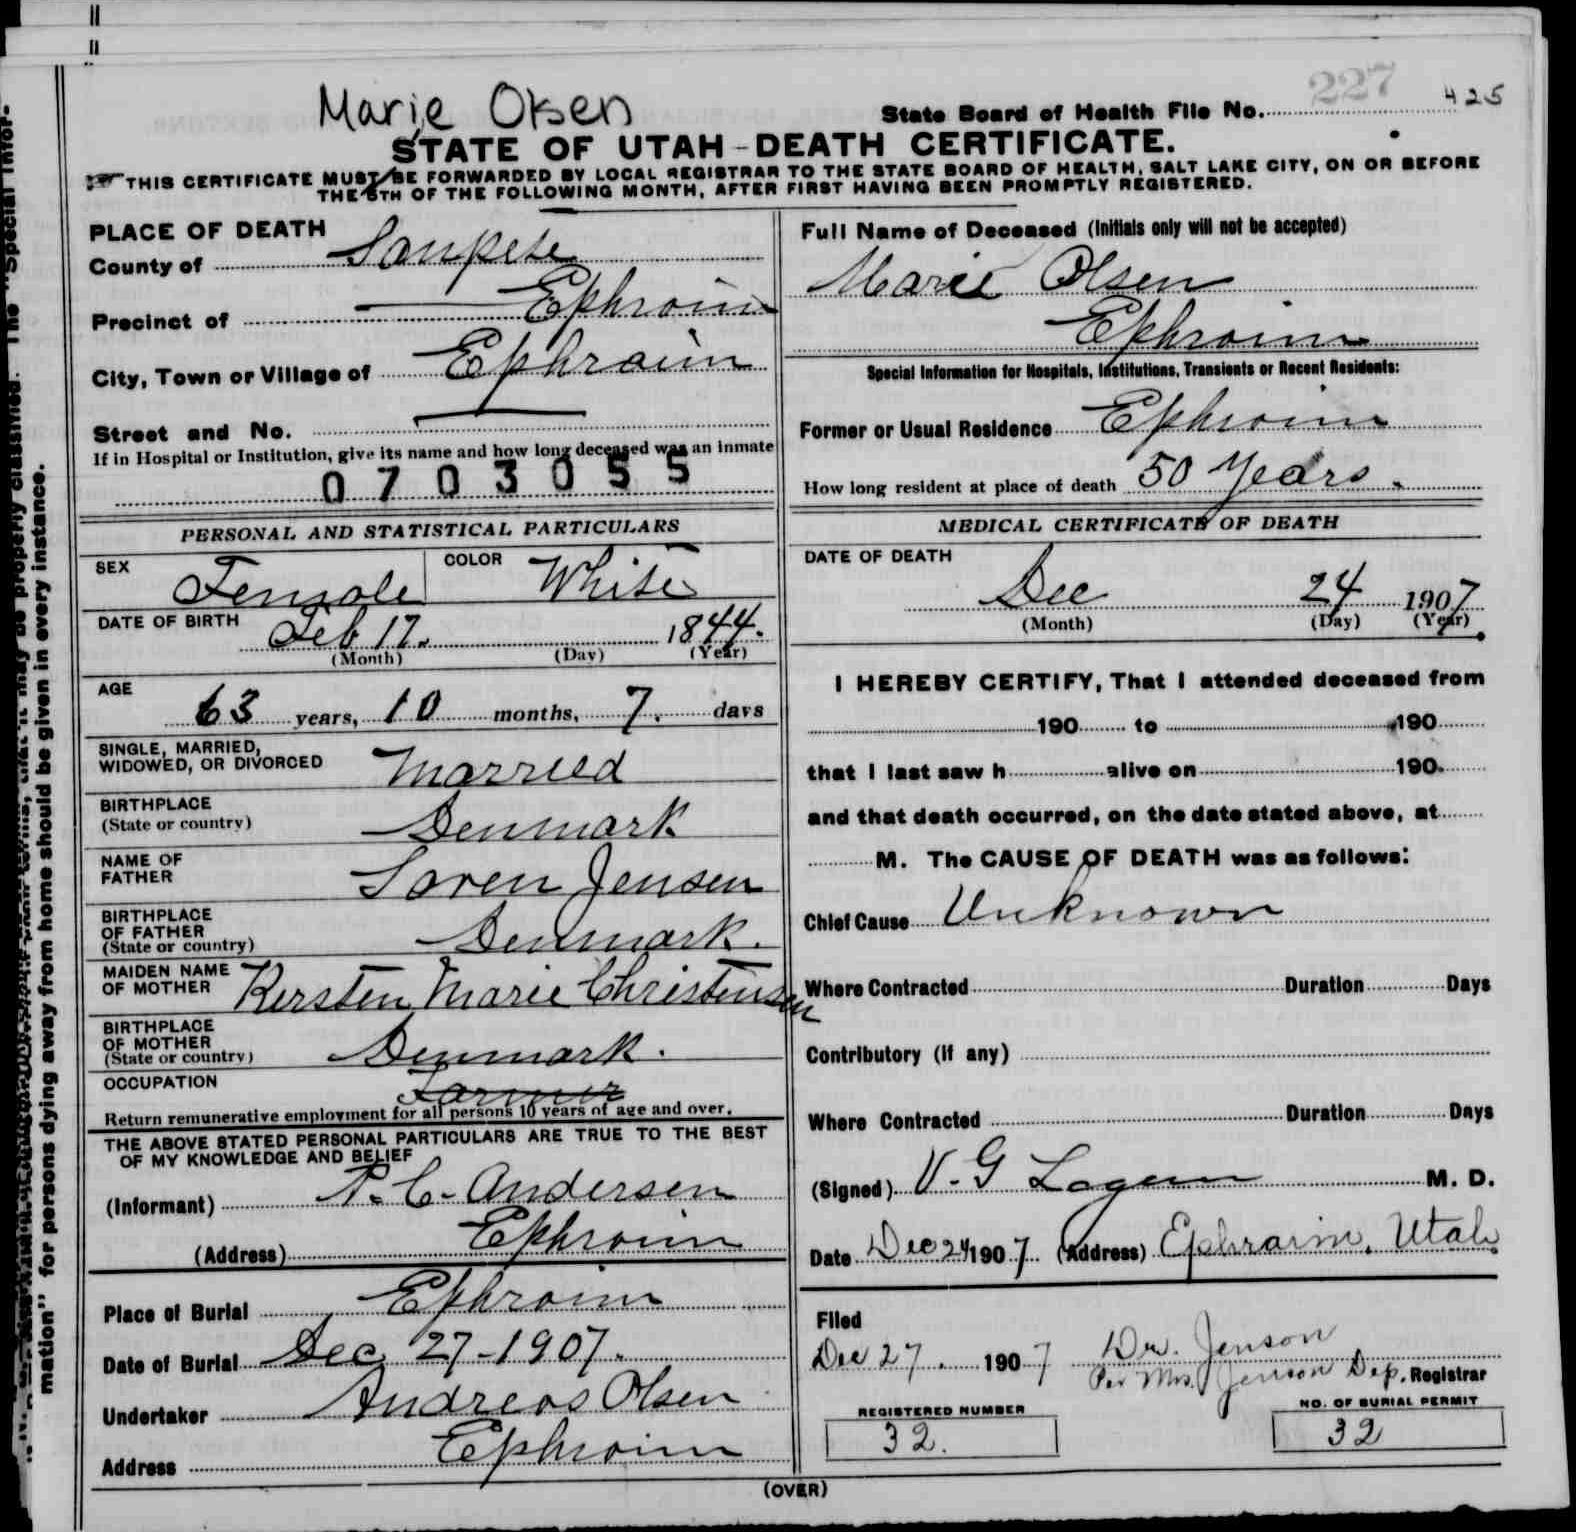 Marie Olsen
State Board of Health File No. 227 425
STATE OF UTAH-DEATH CERTIFICATE.
THIS CERTIFICATE MUST BE FORWARDED BY LOCAL REGISTRAR TO THE STATE BOARD OF HEALTH, SALT LAKE CITY, ON OR BEFORE
THE 5TH OF THE FOLLOWING MONTH, AFTER FIRST HAVING BEEN PROMPTLY REGISTERED.
PLACE OF DEATH
County of Sanpete
Precinct of Ephraim
City, Town or Village of Ephraim
Street and No.
If in Hospital or Institution, give its name and how long deceased was an inmate
0703055
PERSONAL AND STATISTICAL PARTICULARS
SEX Female COLOR White
DATE OF BIRTH Feb 17. 1844.
(Month) (Day) (Year)
AGE 63 years, 10 months, 7. days
SINGLE, MARRIED,
WIDOWED, OR DIVORCED Married
BIRTHPLACE
(State or country) Denmark
NAME OF
FATHER Soren Jensen
BIRTHPLACE
OF FATHER
(State or country) Denmark.
MAIDEN NAME
OF MOTHER Kersten Marie Christensen
BIRTHPLACE
OF MOTHER
(State or country) Denmark.
OCCUPATION Farmer
Return remunerative employment for all persons 10 years of age and over.
THE ABOVE STATED PERSONAL PARTICULARS ARE TRUE TO THE BEST
OF MY KNOWLEDGE AND BELIEF
(Informant) P. C. Andersen
(Address) Ephraim
Place of Burial Ephraim
Date of Burial Dec 27-1907.
Undertaker Andreas Olsen
Address Ephraim
Full Name of Deceased (Initials only will not be accepted)
Marie Olsen
Ephraim
Special Information for Hospitals, Institutions, Transients or Recent Residents:
Former or Usual Residence Ephraim
How long resident at place of death 50 Years.
MEDICAL CERTIFICATE OF DEATH
DATE OF DEATH
Dec 24 1907
(Month) (Day) (Year)
I HEREBY CERTIFY, That I attended deceased from
190 to 190
that I last saw h alive on 190
and that death occurred, on the date stated above, at
M. The CAUSE OF DEATH was as follows:
Chief Cause Unknown
Where Contracted Duration Days
Contributory (if any)
Where Contracted Duration Days
(Signed) V. G. M. D.
Date Dec 24 1907 (Address) Ephraim, Utah
Filed
Dec 27. 1907 Dr. Jenson
Per Mrs. Jenson Dep. Registrar
REGISTERED NUMBER
32.
NO. OF BURIAL PERMIT
32
(OVER)
mation" for persons dying away from home should be given in every instance.